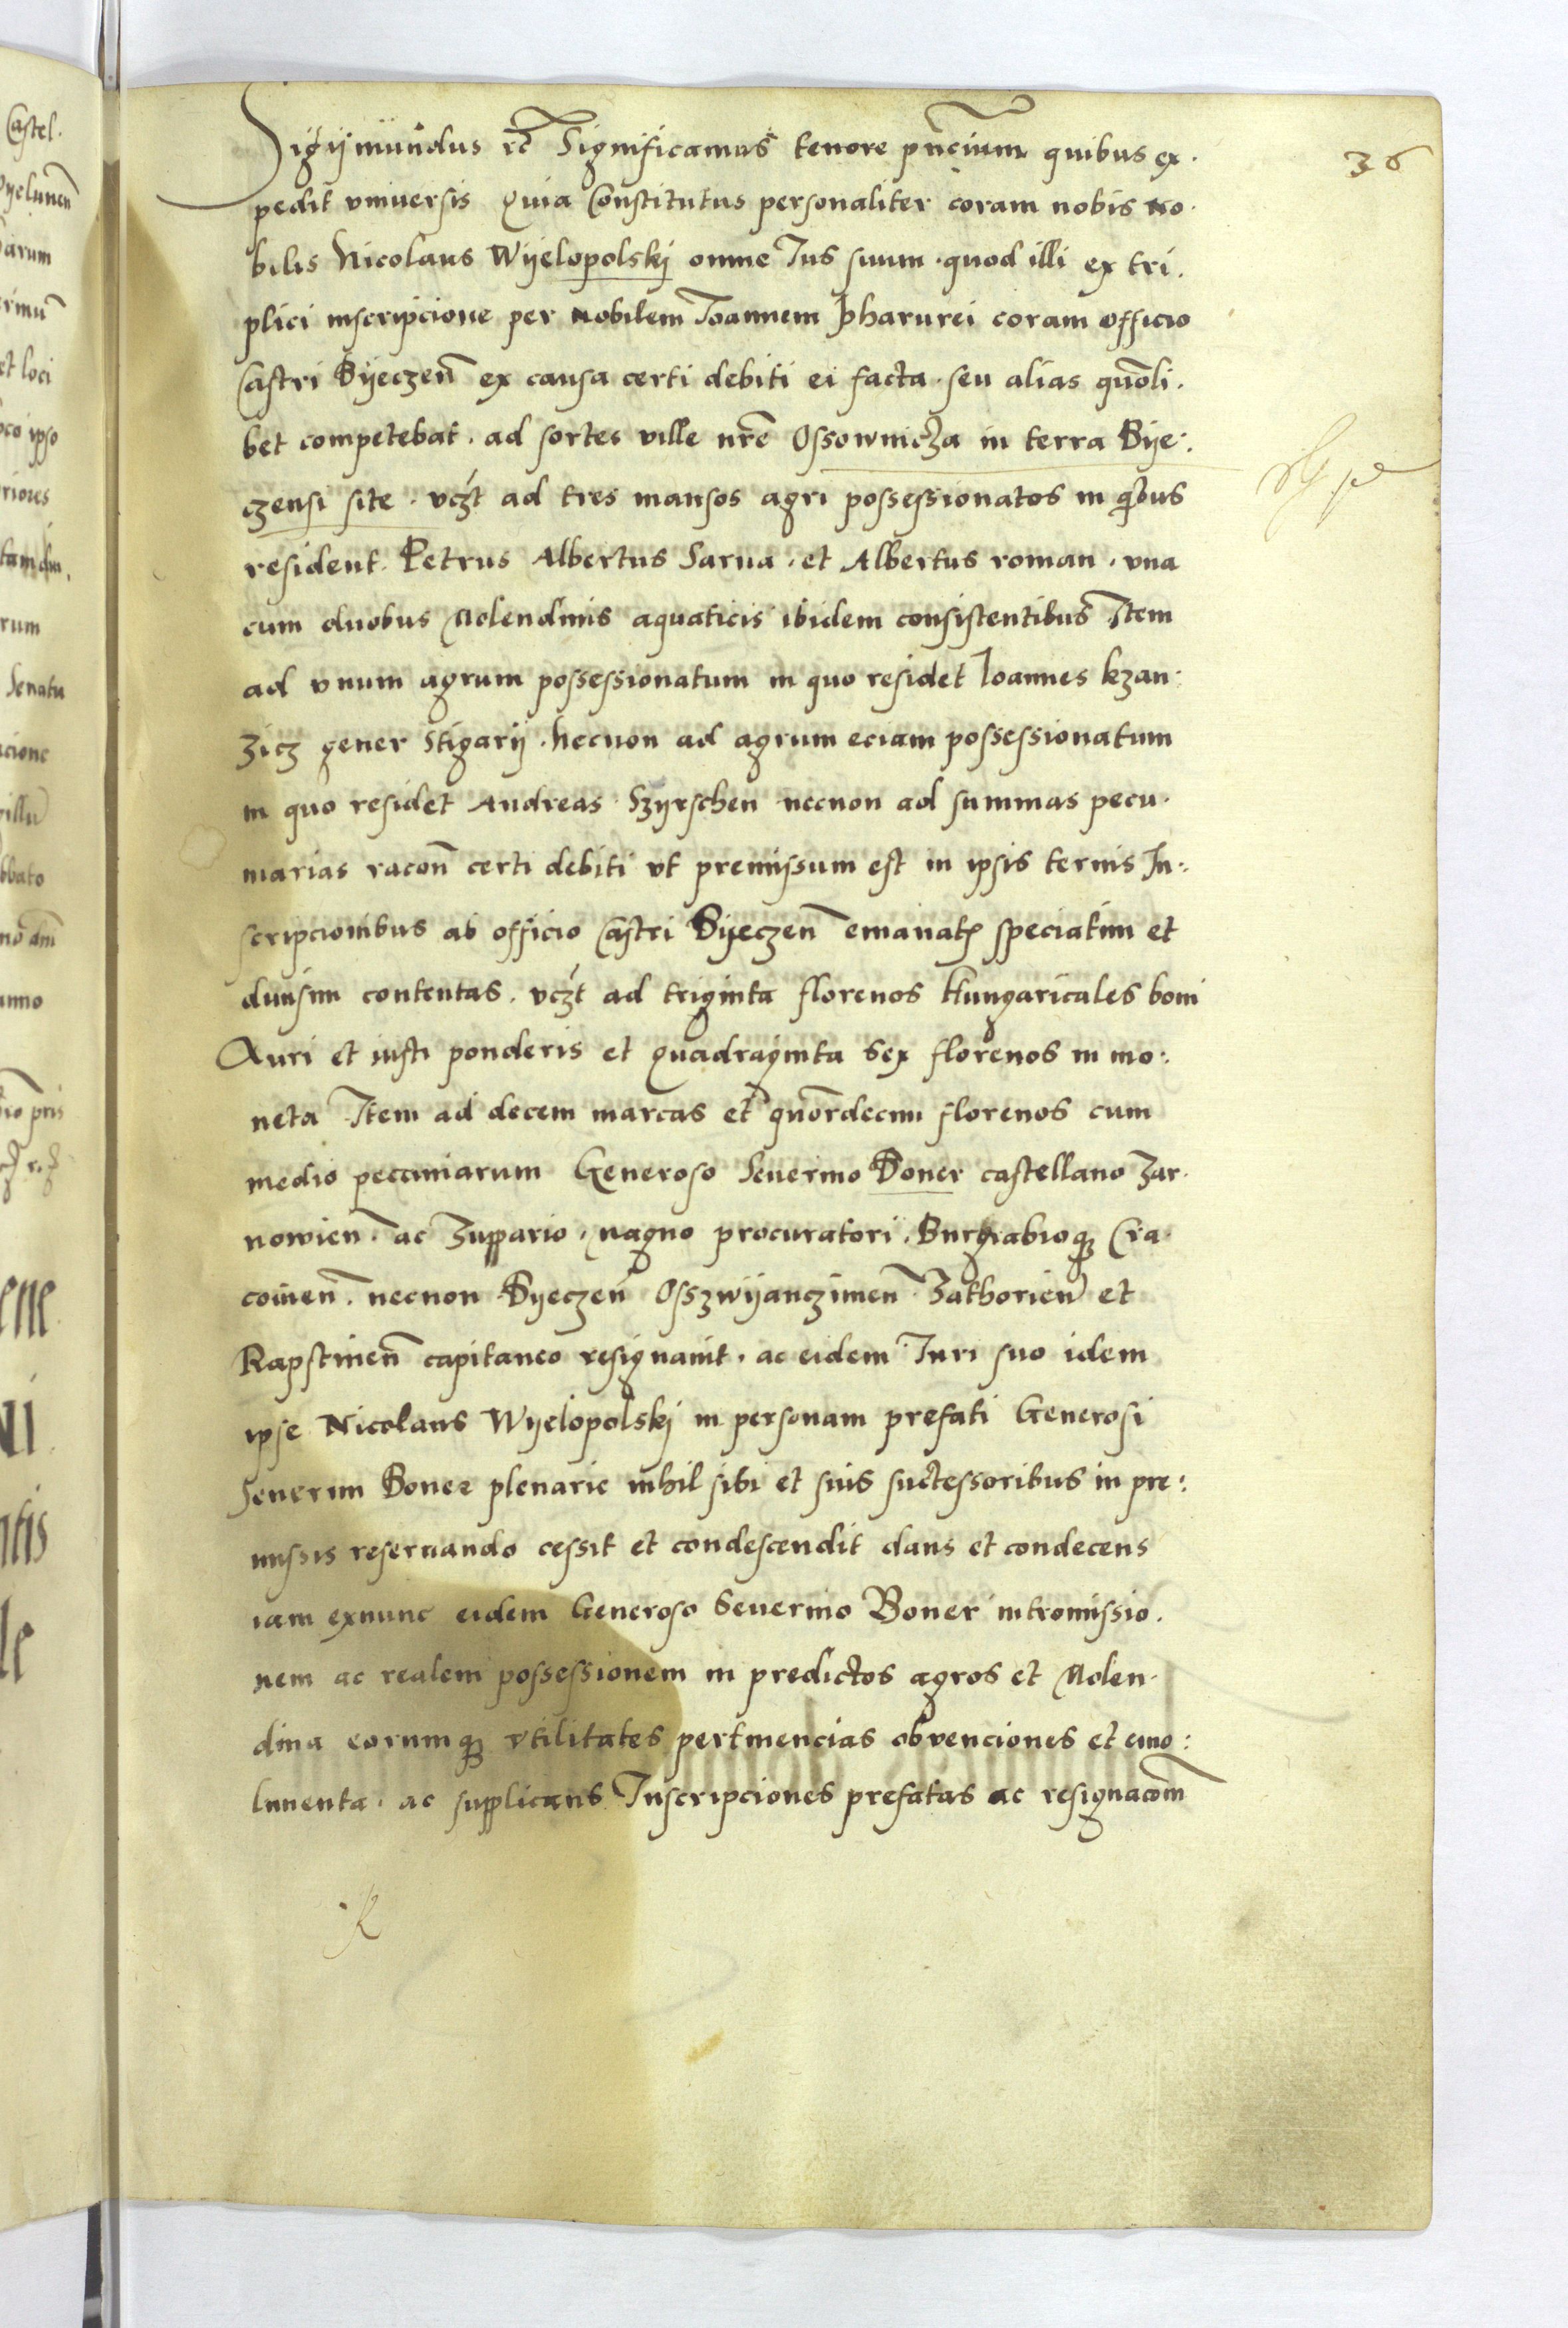 36
Sigijmundus etc Significamus tenore pñcium quibus ex.
pedit vniuersis Quia Constitutus personaliter coram nobis no.
bilis Nicolaus Wijelopolskj omne Ius suum . quod illi ex tri.
plici inscripcione per nobilem Ioannem Pharurei coram officio
Castri Bijeczeñ ex causa certi debiti ei facta . seu alias quõli.
bet competebat . ad sortes ville nrẽ Ossownicza in terra Bije:
czensi site . vczt ad tres mansos agri possessionatos in qibus
resident . Petrus Albertus Sarna . et Albertus roman . vna
cum duobus Molendinis aquaticis ibidem consistentibus Item
ad vnum agrum possessionatum in quo residet Ioannes kzan:
zicz gener Stigarij . Necnon ad agrum eciam possessionatum
in quo residet Andreas Szyrschen necnon ad summas pecu.
niarias racoñ certi debiti vt premissum est in ipsis ternis In:
scripcionibus ab officio Castri Bijeczeñ emanatis speciatim et
diuisim contentas . vczt ad triginta florenos Hungaricales boni
Auri et iusti ponderis et Quadraginta Sex florenos in mo:
neta Item ad decem marcas et quordecim florenos cum
medio pecuniarum Generoso Seuerino Boner castellano Zar.
nowieñ . ac Zuppario . magno procuratori . Burgrabioq3 Cra.
couieñ . necnon Byeczeñ Osszwijanczimeñ Zathorieñ et
Rapstineñ capitaneo resignauit . ac eidem Iuri suo idem
ipse Nicolaus Wyelopolskj in personam prefati Generosi
Seuerini Boner plenarie nihil sibi et suis successoribus in pre:
missis reseruando cessit et condescendit dans et condecens
iam exnunc eidem Generoso Seuerino Boner intromissio.
nem ac realem possessionem in predictos agros et Molen.
dina eorumq3 vtilitates pertinencias obvenciones et emo:
lumenta . ac supplicans Inscripciones prefatas ac resignacõm